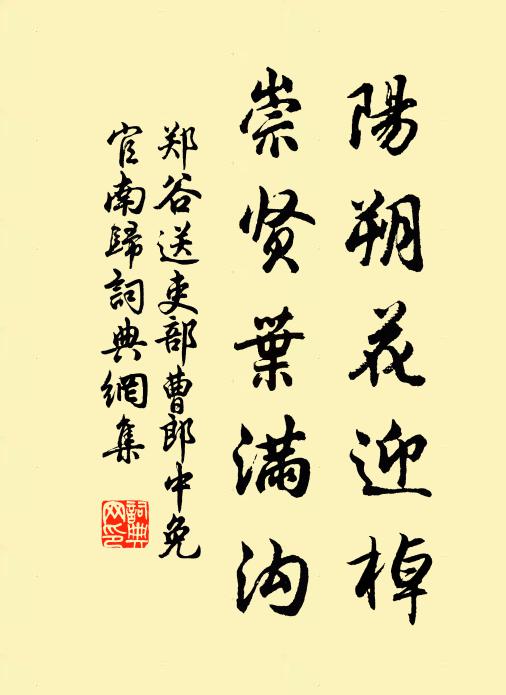 陽朔花迎棹
崇贤葉满沟
郑谷送吏部曹郎中免
官南歸詞典網集
詞典网印